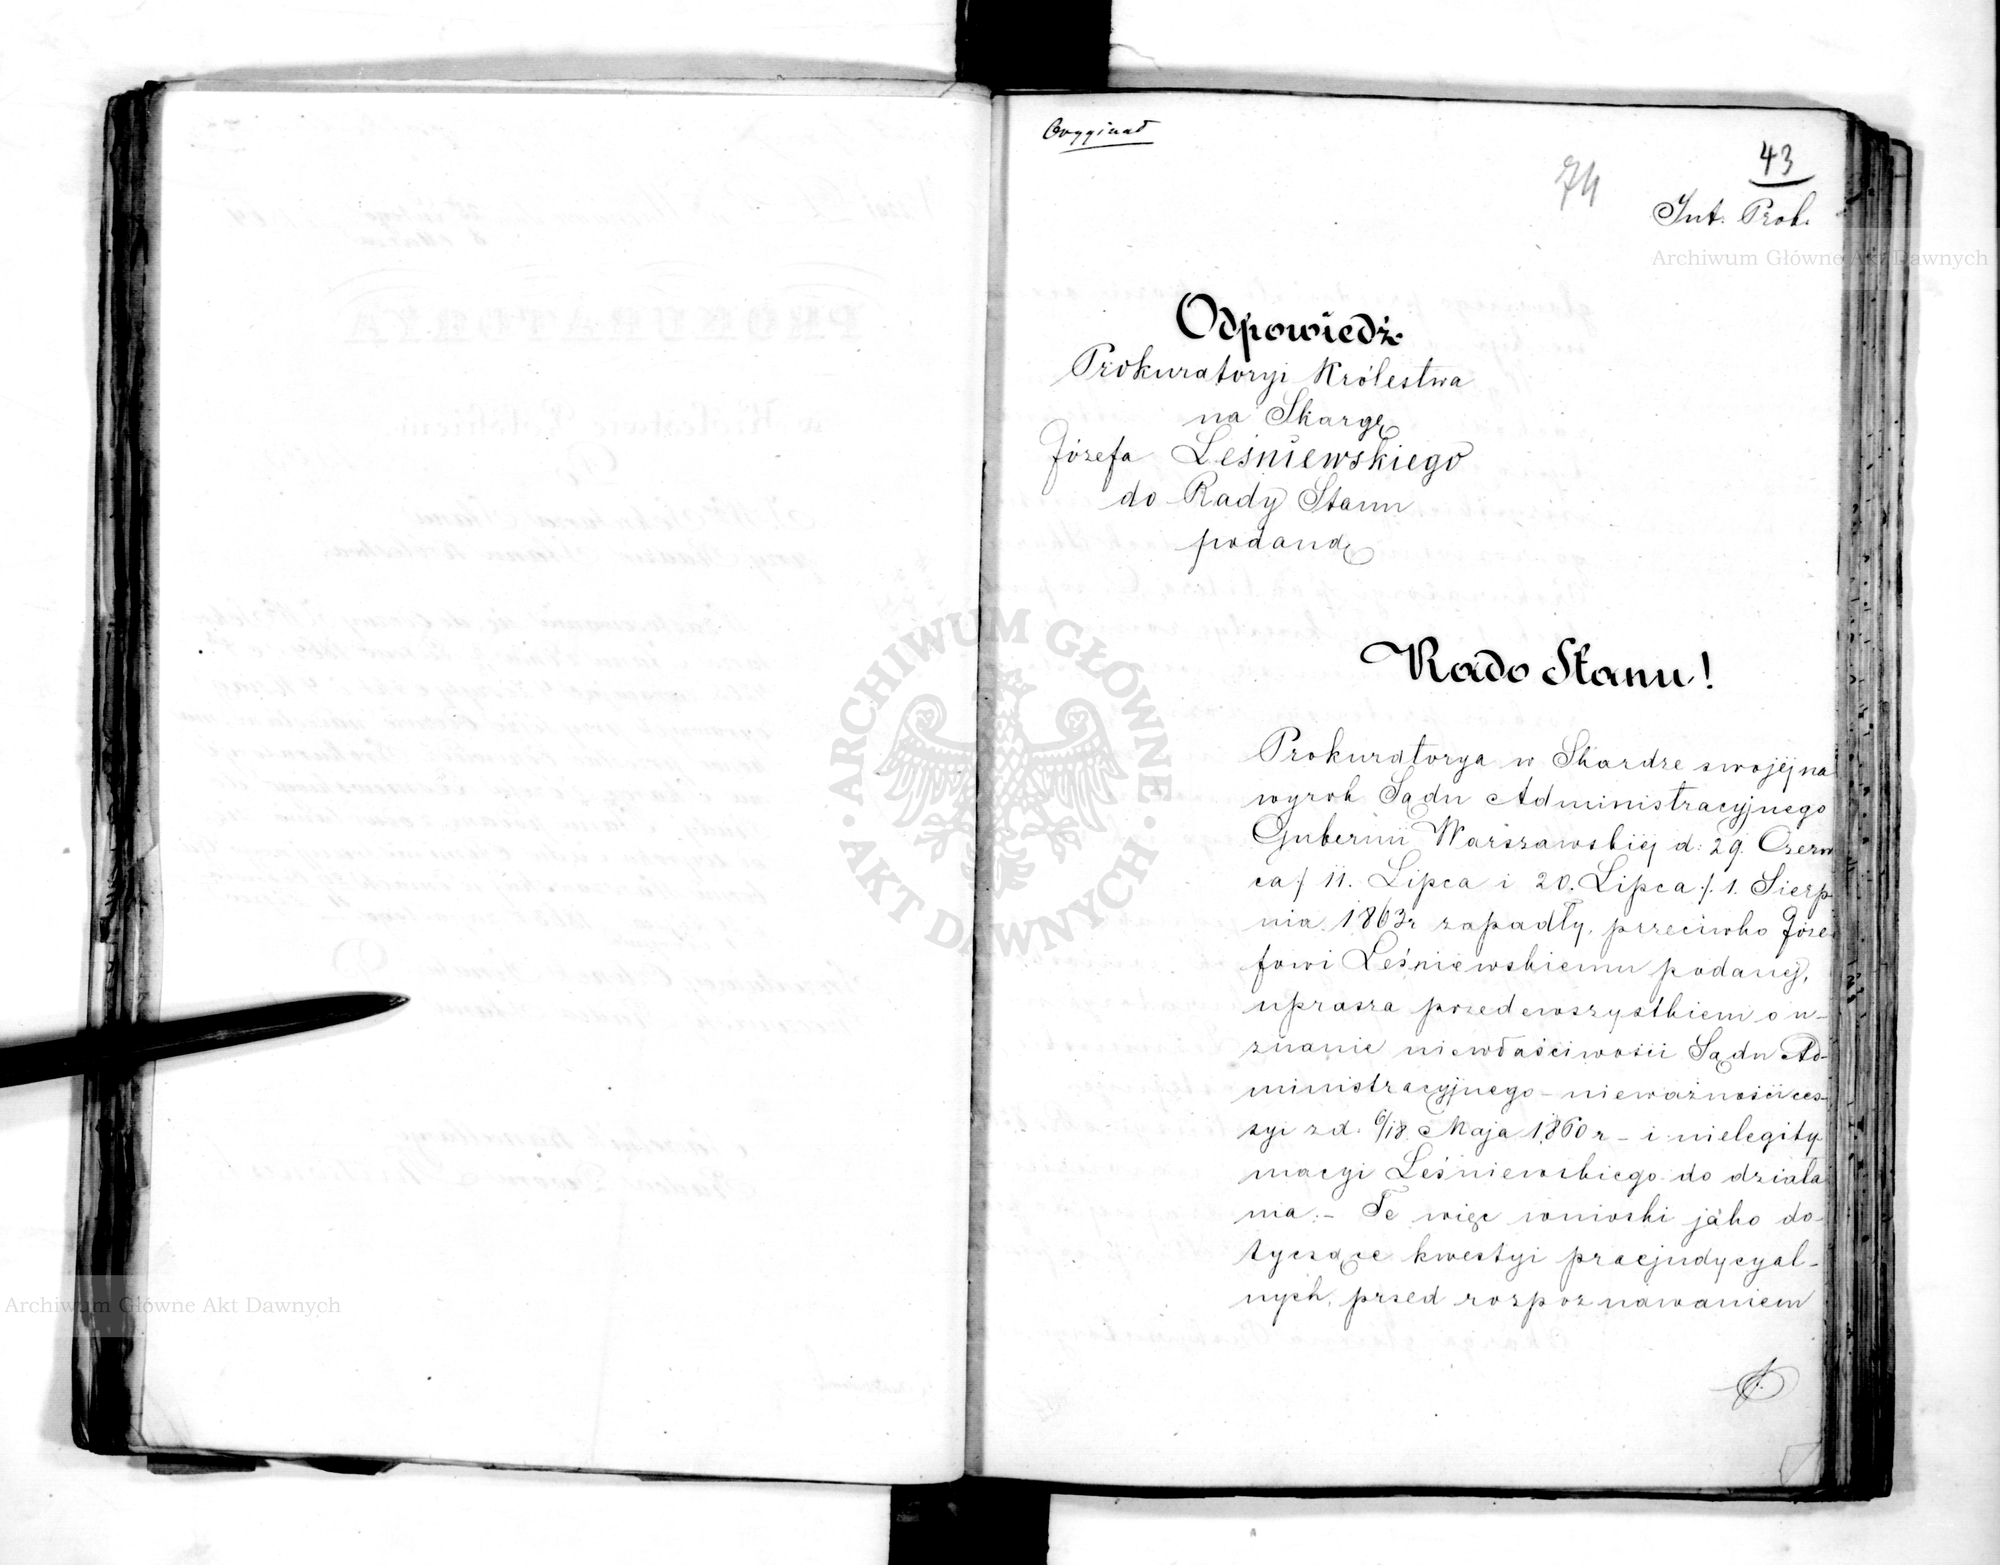 Oryginał
43
74
Int. Prob.
Odpowiedź
Prokuratoryi Królestwa
na Skargę
Józefa Leśniewskiego
do Rady Stanu
podaną
Rado Stanu!
Prokuratorya w Skardze swojéj na
wyrok Sądu Administracyjnego
Gubernii Warszawskiéj d: 29. Czerw
ca / 11. Lipca i 20. Lipca / 1. Sierp
nia 1863r zapadły, przeciwko Józe
fowi Leśniewskiemu podanéj,
uprasza przedewszystkiem o u-
znanie niewłaściwości Sądu Ad-
ministracyjnego - nieważności ces-
syi z d. 6/18. Maja 1860 r - i nielegity
macyi Leśniewskiego do działa
nia. - Te więc wnioski jako do-
tyczące kwestyi praejudycyal-
nych, przed rozpoznawaniem
Archiwum Główne Akt Dawnych
Archiwum Główne Akt Dawnych
ARCHIWUM GŁÓWNE
AKT DAWNYCH